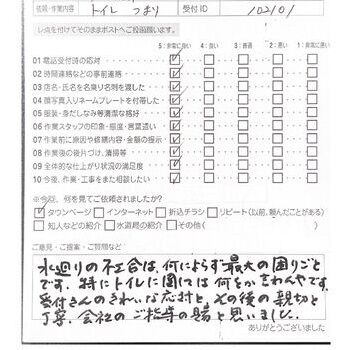 依頼・作業内容 トイレ つまり 受付ID 102101
レ点を付けてそのままポストへご投函願います。
5:非常に良い 4:良い 3:普通 2:悪い 1:非常に悪い
01 電話受付時の応対
02 時間連絡などの事前連絡
03 店名・氏名を名乗り名刺を渡した
04 顔写真入りネームプレートを付帯した
05 服装・身だしなみ等清潔な格好
06 作業スタッフの印象・態度・言葉遣い
07 作業前に原因や修繕内容・金額の提示
08 作業後の後片づけ、清掃等
09 全体的な仕上がり状況の満足度
10 今後、作業・工事をまた相談したい
※今回、何を見てご依頼されましたか?
タウンページ インターネット 折込チラシ リピート(以前、頼んだことがある)
知人などの紹介 水道局の紹介 その他( )
ご意見・ご提案・ご質問など
水廻りの不具合は、何によらず最大の困りごと
です。特にトイレに関しては何をか言わんやです。
受付さんのきれいな応対と、その後の親切と
丁寧、会社のご指導の賜と思いました。
ありがとうございました